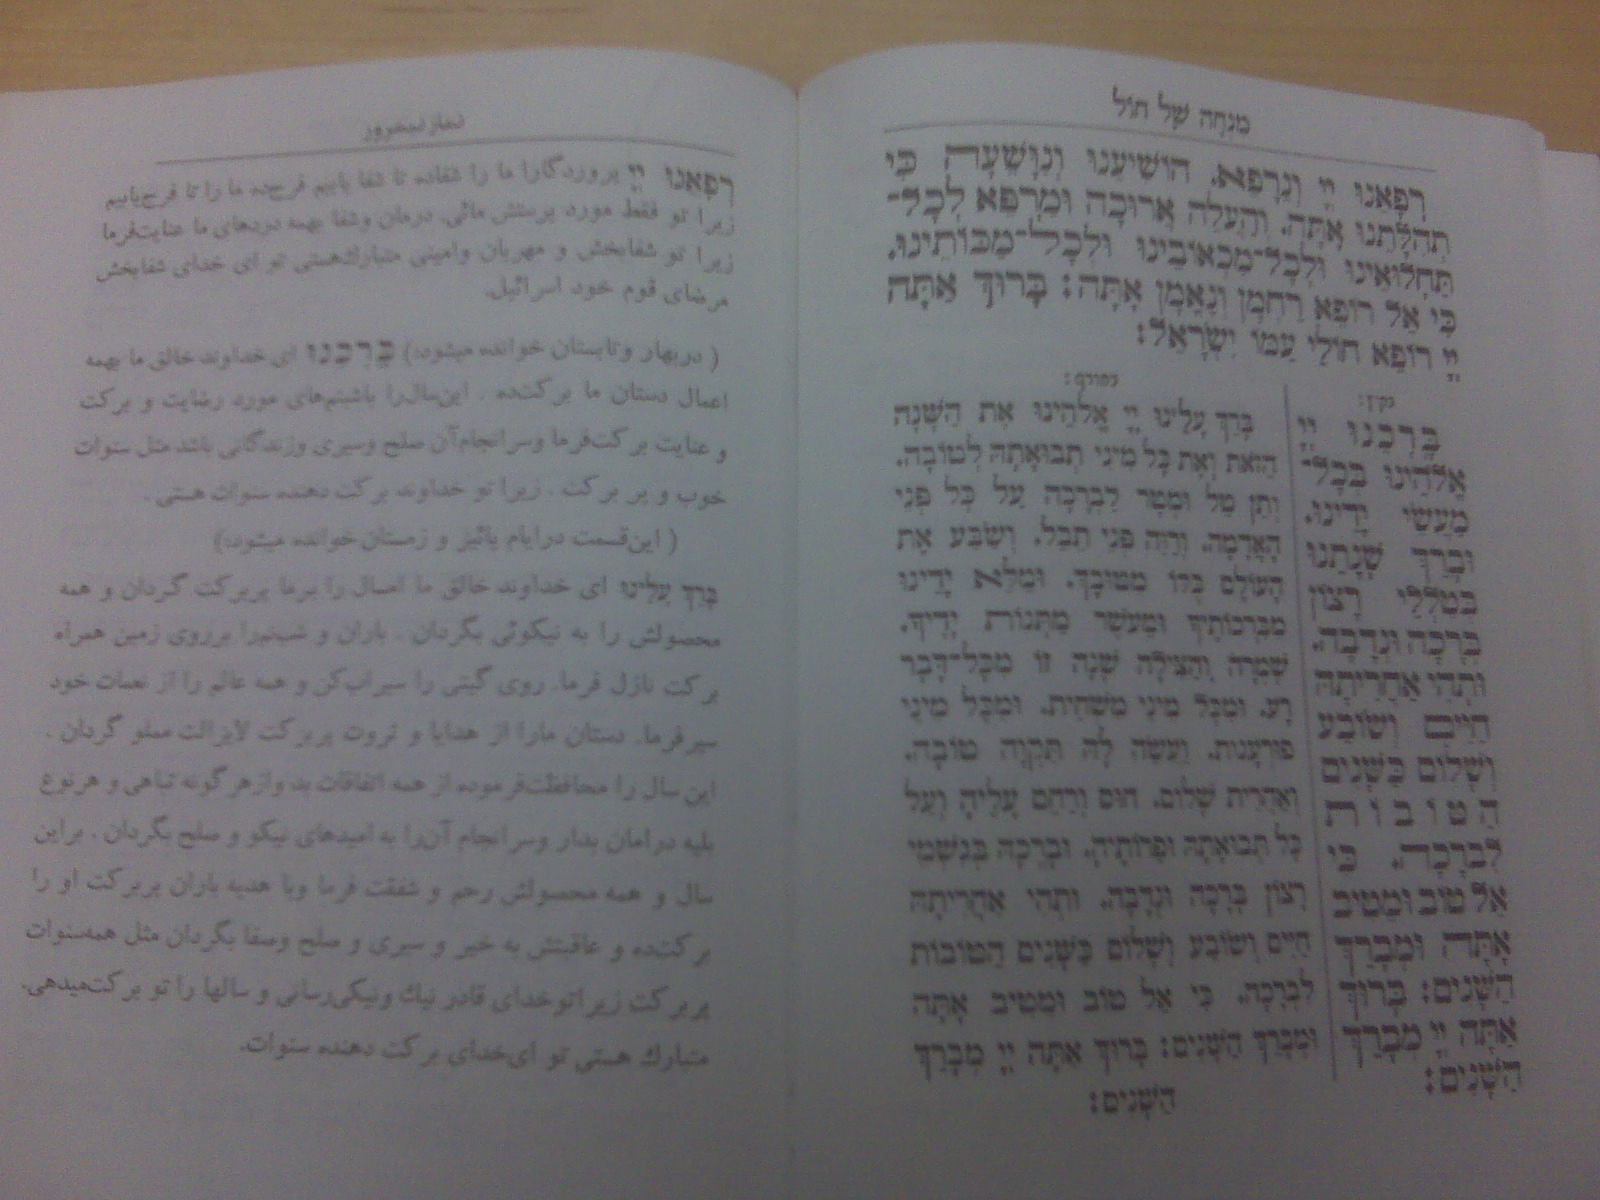 מִנְחָה שֶׁל חוֹל
רְפָאֵנוּ יְיָ וְנֵרָפֵא. הוֹשִׁיעֵנוּ וְנִוָּשֵׁעָה כִּי
תְהִלָּתֵנוּ אָתָּה. וְהַעֲלֵה אֲרוּכָה וּמַרְפֵּא לְכָל־
תַּחֲלוּאֵינוּ וּלְכָל־מַכְאוֹבֵינוּ וּלְכָל־מַכּוֹתֵינוּ.
כִּי אֵל רוֹפֵא רַחֲמָן וְנֶאֱמָן אָתָּה: בָּרוּךְ אַתָּה
יְיָ רוֹפֵא חוֹלֵי עַמּוֹ יִשְׂרָאֵל:
בקיץ:
בָּרְכֵנוּ יְיָ
אֱלֹהֵינוּ בְּכָל־
מַעֲשֵׂי יָדֵינוּ.
וּבָרֵךְ שְׁנָתֵנוּ
בְּטַלְלֵי רָצוֹן
בְּרָכָה וּנְדָבָה.
וּתְהִי אַחֲרִיתָהּ
חַיִּים וְשׂוֹבַע
וְשָׁלוֹם כַּשָּׁנִים
הַטּוֹבוֹת
לִבְרָכָה. כִּי
אֵל טוֹב וּמֵטִיב
אָתָּה וּמְבָרֵךְ
הַשָּׁנִים: בָּרוּךְ
אַתָּה יְיָ מְבָרֵךְ
הַשָּׁנִים:
בחורף:
בָּרֵךְ עָלֵינוּ יְיָ אֱלֹהֵינוּ אֶת הַשָּׁנָה
הַזֹּאת וְאֶת כָּל מִינֵי תְבוּאָתָהּ לְטוֹבָה.
וְתֵן טַל וּמָטָר לִבְרָכָה עַל כָּל פְּנֵי
הָאֲדָמָה. וְרַוֵּה פְּנֵי תֵבֵל. וְשַׂבַּע אֶת
הָעוֹלָם כֻּלּוֹ מִטּוּבָךְ. וּמַלֵּא יָדֵינוּ
מִבִּרְכוֹתֶיךָ וּמֵעֹשֶׁר מַתְּנוֹת יָדֶיךָ.
שָׁמְרָה וְהַצִּילָה שָׁנָה זוֹ מִכָּל־דָּבָר
רָע. וּמִכָּל מִינֵי מַשְׁחִית. וּמִכָּל מִינֵי
פוּרְעָנוּת. וַעֲשֵׂה לָהּ תִּקְוָה טוֹבָה.
וְאַחֲרִית שָׁלוֹם. חוּס וְרַחֵם עָלֶיהָ וְעַל
כָּל תְּבוּאָתָהּ וּפֵרוֹתֶיהָ. וּבָרְכָהּ בְּגִשְׁמֵי
רָצוֹן בְּרָכָה וּנְדָבָה. וּתְהִי אַחֲרִיתָהּ
חַיִּים וְשׂוֹבַע וְשָׁלוֹם כַּשָּׁנִים הַטּוֹבוֹת
לִבְרָכָה. כִּי אֵל טוֹב וּמֵטִיב אָתָּה
וּמְבָרֵךְ הַשָּׁנִים: בָּרוּךְ אַתָּה יְיָ מְבָרֵךְ
הַשָּׁנִים:
نماز نیمروز
רְפָאֵנוּ יְיָ پروردگارا ما را شفاده تا شفا یابیم فرج‌ده ما را تا فرج‌یابیم
زیرا تو فقط مورد پرستش مائی. درمان وشفا بهمه دردهای ما عنایت‌فرما
زیرا تو شفابخش و مهربان وامینی متبارك‌هستی تو ای خدای شفابخش
مرضای قوم خود اسرائیل.
( دربهار وتابستان خوانده میشود:) בָּרְכֵנוּ ای خداوند خالق ما بهمه
اعمال دستان ما برکت‌ده . این‌سال‌را باشبنم‌های مورد رضایت و برکت
و عنایت برکت‌فرما وسرانجام‌آن صلح وسیری وزندگانی باشد مثل سنوات
خوب و پر برکت . زیرا تو خداوند برکت دهنده سنوات هستی .
( این‌قسمت درایام پائیز و زمستان خوانده میشود:)
בָּרֵךְ עָלֵינוּ ای خداوند خالق ما امسال را برما پربرکت گردان و همه
محصولش را به نیکوئی بگردان . باران و شبنم‌را برروی زمین همراه
برکت نازل فرما. روی گیتی را سیراب‌کن و همه عالم را از نعمات خود
سیرفرما. دستان مارا از هدایا و ثروت پربرکت لایزالت مملو گردان .
این سال را محافظت‌فرموده از همه اتفاقات بد وازهر گونه تباهی و هرنوع
بلیه درامان بدار وسرانجام آن‌را به امیدهای نیکو و صلح بگردان . براین
سال و همه محصولش رحم و شفقت فرما وبا هدیه باران پربرکت او را
برکت‌ده و عاقبتش به خیر و سیری و صلح وصفا بگردان مثل همه‌سنوات
پربرکت زیراتوخدای قادر نیك ونیکی‌رسانی و سالها را تو برکت‌میدهی.
متبارك هستی تو ای‌خدای برکت دهنده سنوات.